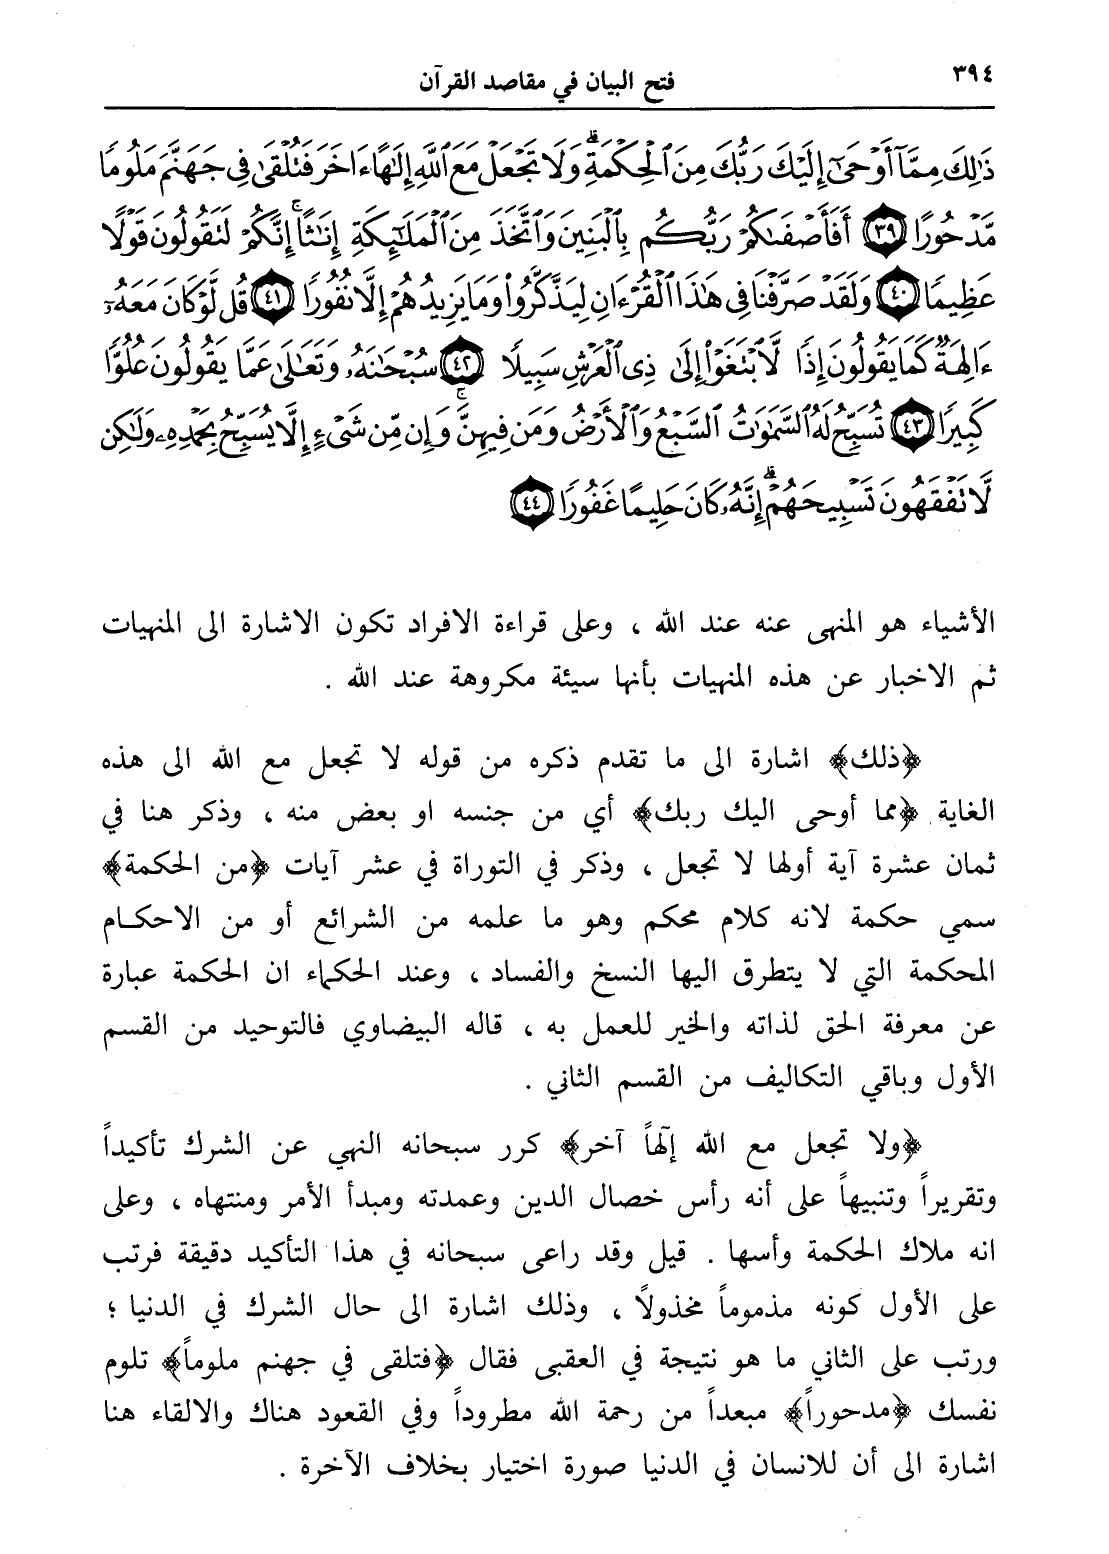 ٣٩٤
فتح البيان في مقاصد القرآن
ذَٰلِكَ مِمَّآ أَوْحَىٰٓ إِلَيْكَ رَبُّكَ مِنَ ٱلْحِكْمَةِ ۗ وَلَا تَجْعَلْ مَعَ ٱللَّهِ إِلَٰهًا ءَاخَرَ فَتُلْقَىٰ فِى جَهَنَّمَ مَلُومًا
مَّدْحُورًا ٣٩ أَفَأَصْفَىٰكُمْ رَبُّكُم بِٱلْبَنِينَ وَٱتَّخَذَ مِنَ ٱلْمَلَٰٓئِكَةِ إِنَٰثًا ۚ إِنَّكُمْ لَتَقُولُونَ قَوْلًا
عَظِيمًا ٤٠ وَلَقَدْ صَرَّفْنَا فِى هَٰذَا ٱلْقُرْءَانِ لِيَذَّكَّرُوا۟ وَمَا يَزِيدُهُمْ إِلَّا نُفُورًا ٤١ قُل لَّوْ كَانَ مَعَهُۥٓ
ءَالِهَةٌ كَمَا يَقُولُونَ إِذًا لَّٱبْتَغَوْا۟ إِلَىٰ ذِى ٱلْعَرْشِ سَبِيلًا ٤٢ سُبْحَٰنَهُۥ وَتَعَٰلَىٰ عَمَّا يَقُولُونَ عُلُوًّا
كَبِيرًا ٤٣ تُسَبِّحُ لَهُ ٱلسَّمَٰوَٰتُ ٱلسَّبْعُ وَٱلْأَرْضُ وَمَن فِيهِنَّ ۚ وَإِن مِّن شَىْءٍ إِلَّا يُسَبِّحُ بِحَمْدِهِۦ وَلَٰكِن
لَّا تَفْقَهُونَ تَسْبِيحَهُمْ ۗ إِنَّهُۥ كَانَ حَلِيمًا غَفُورًا ٤٤
الأشياء هو المنهى عنه عند الله ، وعلى قراءة الافراد تكون الاشارة الى المنهيات
ثم الاخبار عن هذه المنهيات بأنها سيئة مكروهة عند الله .
﴿ذلك﴾ اشارة الى ما تقدم ذكره من قوله لا تجعل مع الله الى هذه
الغاية ﴿مما أوحى اليك ربك﴾ أي من جنسه او بعض منه ، وذكر هنا في
ثمان عشرة آية أولها لا تجعل ، وذكر في التوراة في عشر آيات ﴿من الحكمة﴾
سمي حكمة لانه كلام محكم وهو ما علمه من الشرائع أو من الاحكام
المحكمة التي لا يتطرق اليها النسخ والفساد ، وعند الحكماء ان الحكمة عبارة
عن معرفة الحق لذاته والخير للعمل به ، قاله البيضاوي فالتوحيد من القسم
الأول وباقي التكاليف من القسم الثاني .
﴿ولا تجعل مع الله إلٓهاً آخر﴾ كرر سبحانه النهي عن الشرك تأكيداً
وتقريراً وتنبيهاً على أنه رأس خصال الدين وعمدته ومبدأ الأمر ومنتهاه ، وعلى
انه ملاك الحكمة وأسها . قيل وقد راعى سبحانه في هذا التأكيد دقيقة فرتب
على الأول كونه مذموماً مخذولاً ، وذلك اشارة الى حال الشرك في الدنيا ؛
ورتب على الثاني ما هو نتيجة في العقبى فقال ﴿فتلقى في جهنم ملوماً﴾ تلوم
نفسك ﴿مدحوراً﴾ مبعداً من رحمة الله مطروداً وفي القعود هناك والالقاء هنا
اشارة الى أن للانسان في الدنيا صورة اختيار بخلاف الآخرة .